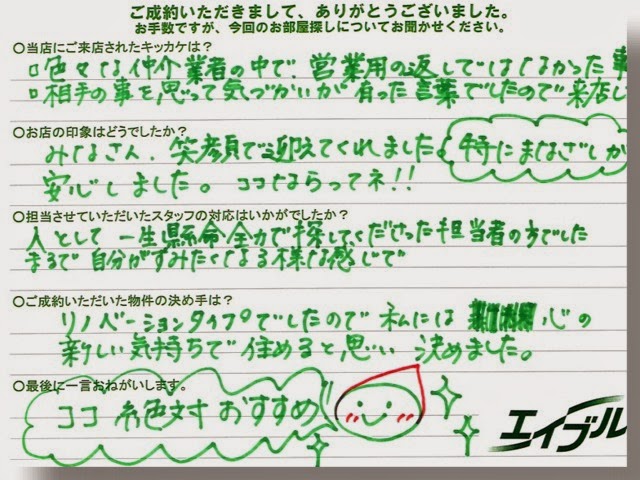 ご成約いただきまして、ありがとうございました。
お手数ですが、今回のお部屋探しについてお聞かせください。
○当店にご来店されたキッカケは？
色々な仲介業者の中で、営業用の返しではなかった事
相手の事を思って気づかいが有った言葉でしたので来店し
○お店の印象はどうでしたか？
みなさん、笑顔で迎えてくれました。特にまなざしが
安心しました。ココならってネ!!
○担当させていただいたスタッフの対応はいかがでしたか？
人として一生懸命全力で探してくださった担当者の方でした
まるで自分がすみたくなる様な感じで
○ご成約いただいた物件の決め手は？
リノベーションタイプでしたので私には 心の
新しい気持ちで住めると思い決めました。
○最後に一言おねがいします。
ココ絶対おすすめ
エイブル